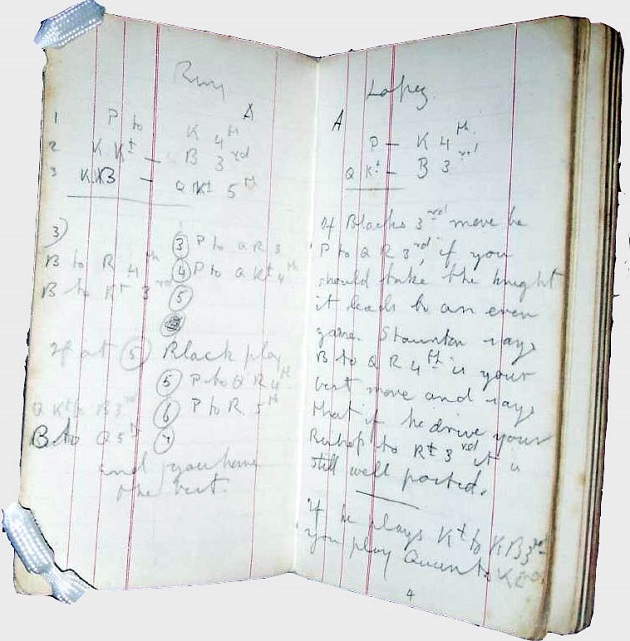 Ruy
A
1 P to K 4th
2 K Kt – B 3rd
3 KKB – Q Kt 5th
3)
③ P to Q R 3
B to R 4th ④ P to Q Kt 4th
B to Kt 3rd ⑤
If at ⑤ Black play
⑤ P to Q R 4th
Q Kt to B 3rd ⑥ P to R 5th
B to Q 5th ⑦
and you have
the best.
Lopez
A
P – K 4th
Q Kt – B 3rd
If Blacks 3rd move be
P to Q R 3rd, if you
should take the knight
it leads to an even
game. Staunton says
B to Q R 4th is your
best move and says
that if he drive your
Bishop to Kt 3rd it is
still well posted.
If he plays Kt to KB3rd
you play Queen to K2nd
4